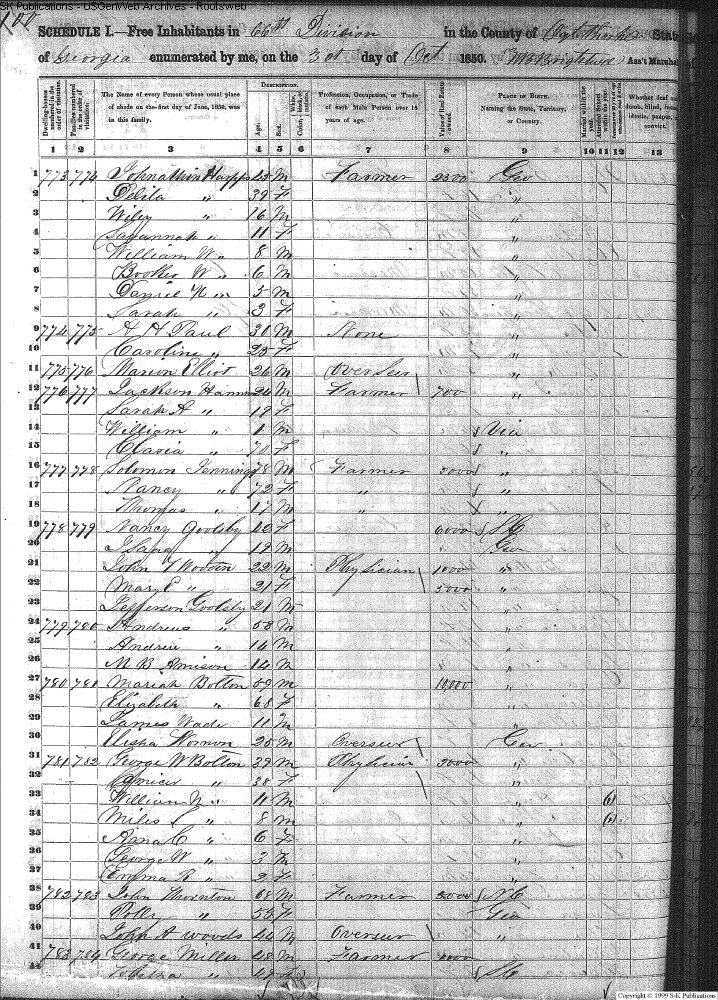 SK Publications - USGenWeb Archives - Rootsweb
SCHEDULE I.—Free Inhabitants in 66th Division in the County of Oglethorpe State
of Georgia enumerated by me, on the 3d day of Oct 1850. Ass't Marshal
Dwelling-houses numbered in the order of visitation. Families numbered in the order of visitation. The Name of every Person whose usual place of abode on the first day of June, 1850, was in this family. DESCRIPTION. Age. Sex. White, black, or mulatto. Profession, Occupation, or Trade of each Male Person over 15 years of age. Value of Real Estate owned. PLACE OF BIRTH. Naming the State, Territory, or Country. Married within the year. Attended School within the year. Whether deaf and dumb, blind, insane, idiotic, pauper, or convict.
1 2 3 4 5 6 7 8 9 10 11 12 13
1 773 774 Johnathin 45 M Farmer 2500 Geo
2 Delila " 39 F "
3 Wiley " 16 M "
4 Savannah " 11 F "
5 William W " 8 M "
6 Booker W " 6 M "
7 Daniel " 5 M "
8 Sarah " 3 F "
9 774 775 A H Paul 30 M None "
10 Caroline " 25 F "
11 775 776 Marion Elliot 26 M Overseer "
12 776 777 Jackson 26 M Farmer 700 "
13 Sarah A " 19 F "
14 William " 1 M Via
15 " 70 F "
16 777 778 Solomon Jennings 78 M Farmer "
17 Nancy " 72 F " "
18 Thomas " 17 M " "
19 778 779 Nancy Goolsby F 6000 SC
20 " 19 M Geo
21 John T 22 M Physician 1000 "
22 Mary E " 21 F 5000 "
23 Jefferson Goolsby 21 M "
24 779 780 " 58 M "
25 " 14 M "
26 M B Amison 14 M "
27 780 781 Mariah Bolton 59 10,000 "
28 Elizabeth " 68 F "
29 James Wade 11 M "
30 Elisha 25 M Overseer Geo
31 781 782 George W Bolton 39 M Physician 3000 "
32 " 38 F "
33 William N " 11 M "
34 Miles " 8 M "
35 C " 6 F "
36 George W " 3 M "
37 Emma R " 2 F "
38 782 783 John Thornton 68 M Farmer NC
39 Polly " 53 F Geo
40 John A woods 44 M Overseer "
41 783 784 George Miller 48 M Farmer "
42 " F SC
Copyright © 1999 S-K Publications